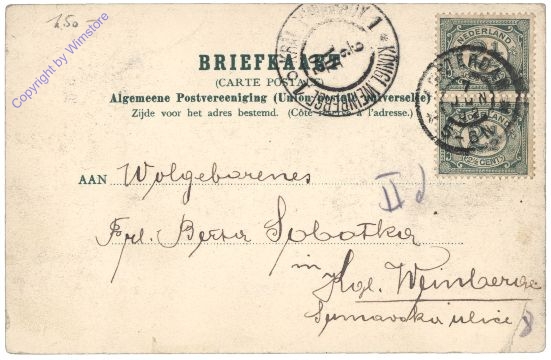 1.50
Copyright by Wimstore
BRIEFKAART
(CARTE POSTALE)
Algemeene Postvereeniging (Union Postale Universelle)
Zijde voor het adres bestemd. (Côté réservé à l'adresse.)
KÖNIGL. WEINBERGE 1
NEDERLAND
AMSTERDAM
JUN
NEDERLAND
2½ CENT
AAN Wolgebarenes
II d
Frl. Berta Sobotka
in
Kgl. Weinberge
Sumavska ulice 8